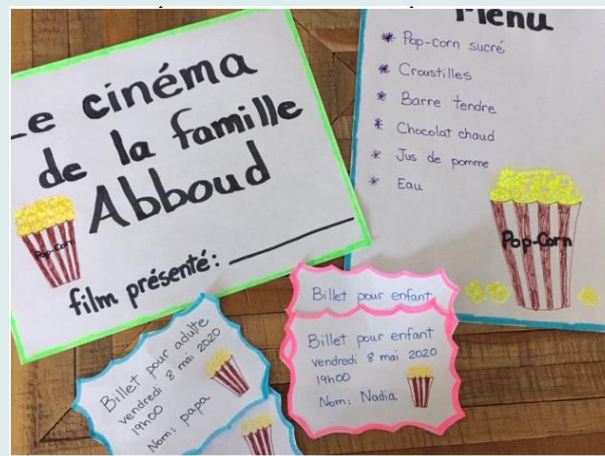 Le cinéma
de la famille
Abboud
Pop-Corn
film présenté:
Menu
* Pop-corn sucré
* Croustilles
* Barre tendre
* Chocolat chaud
* Jus de pomme
* Eau
Pop-Corn
Billet pour adulte
vendredi 8 mai 2020
19h00
Nom: papa
Billet pour enfant
Billet pour enfant
vendredi 8 mai 2020
19h00
Nom: Nadia